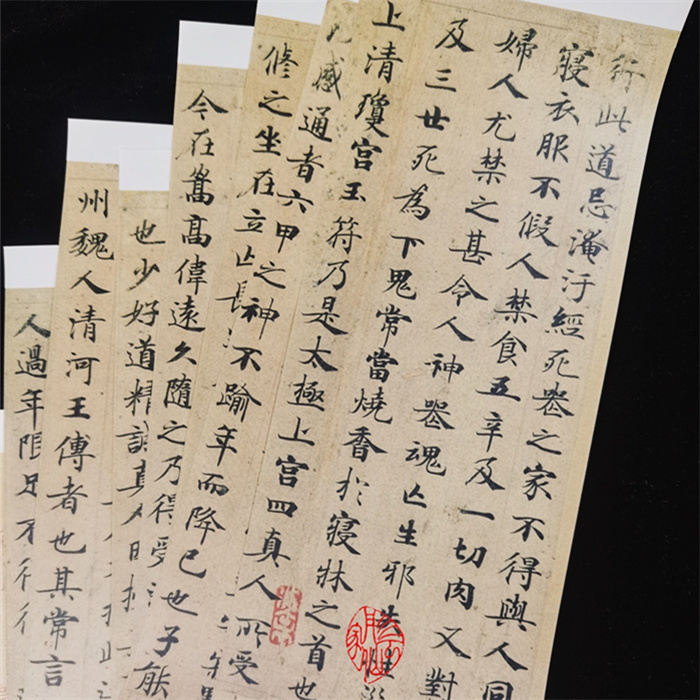 行此道忌淹汙經死喪之家不得與人同
寢衣服不假人禁食五辛及一切肉又對
婦人尤禁之甚令人神喪魂亡生邪失性
及三世死為下鬼常當燒香於寢牀之首也
上清瓊宮玉符乃是太極上宮四真人所受
感通者六甲之神不踰年而降己也子能
脩之坐在立亡長
今在嵩高偉遠久隨之乃得受
也少好道精誠真
州魏人清河王傳者也其常言
人過年限足不得行